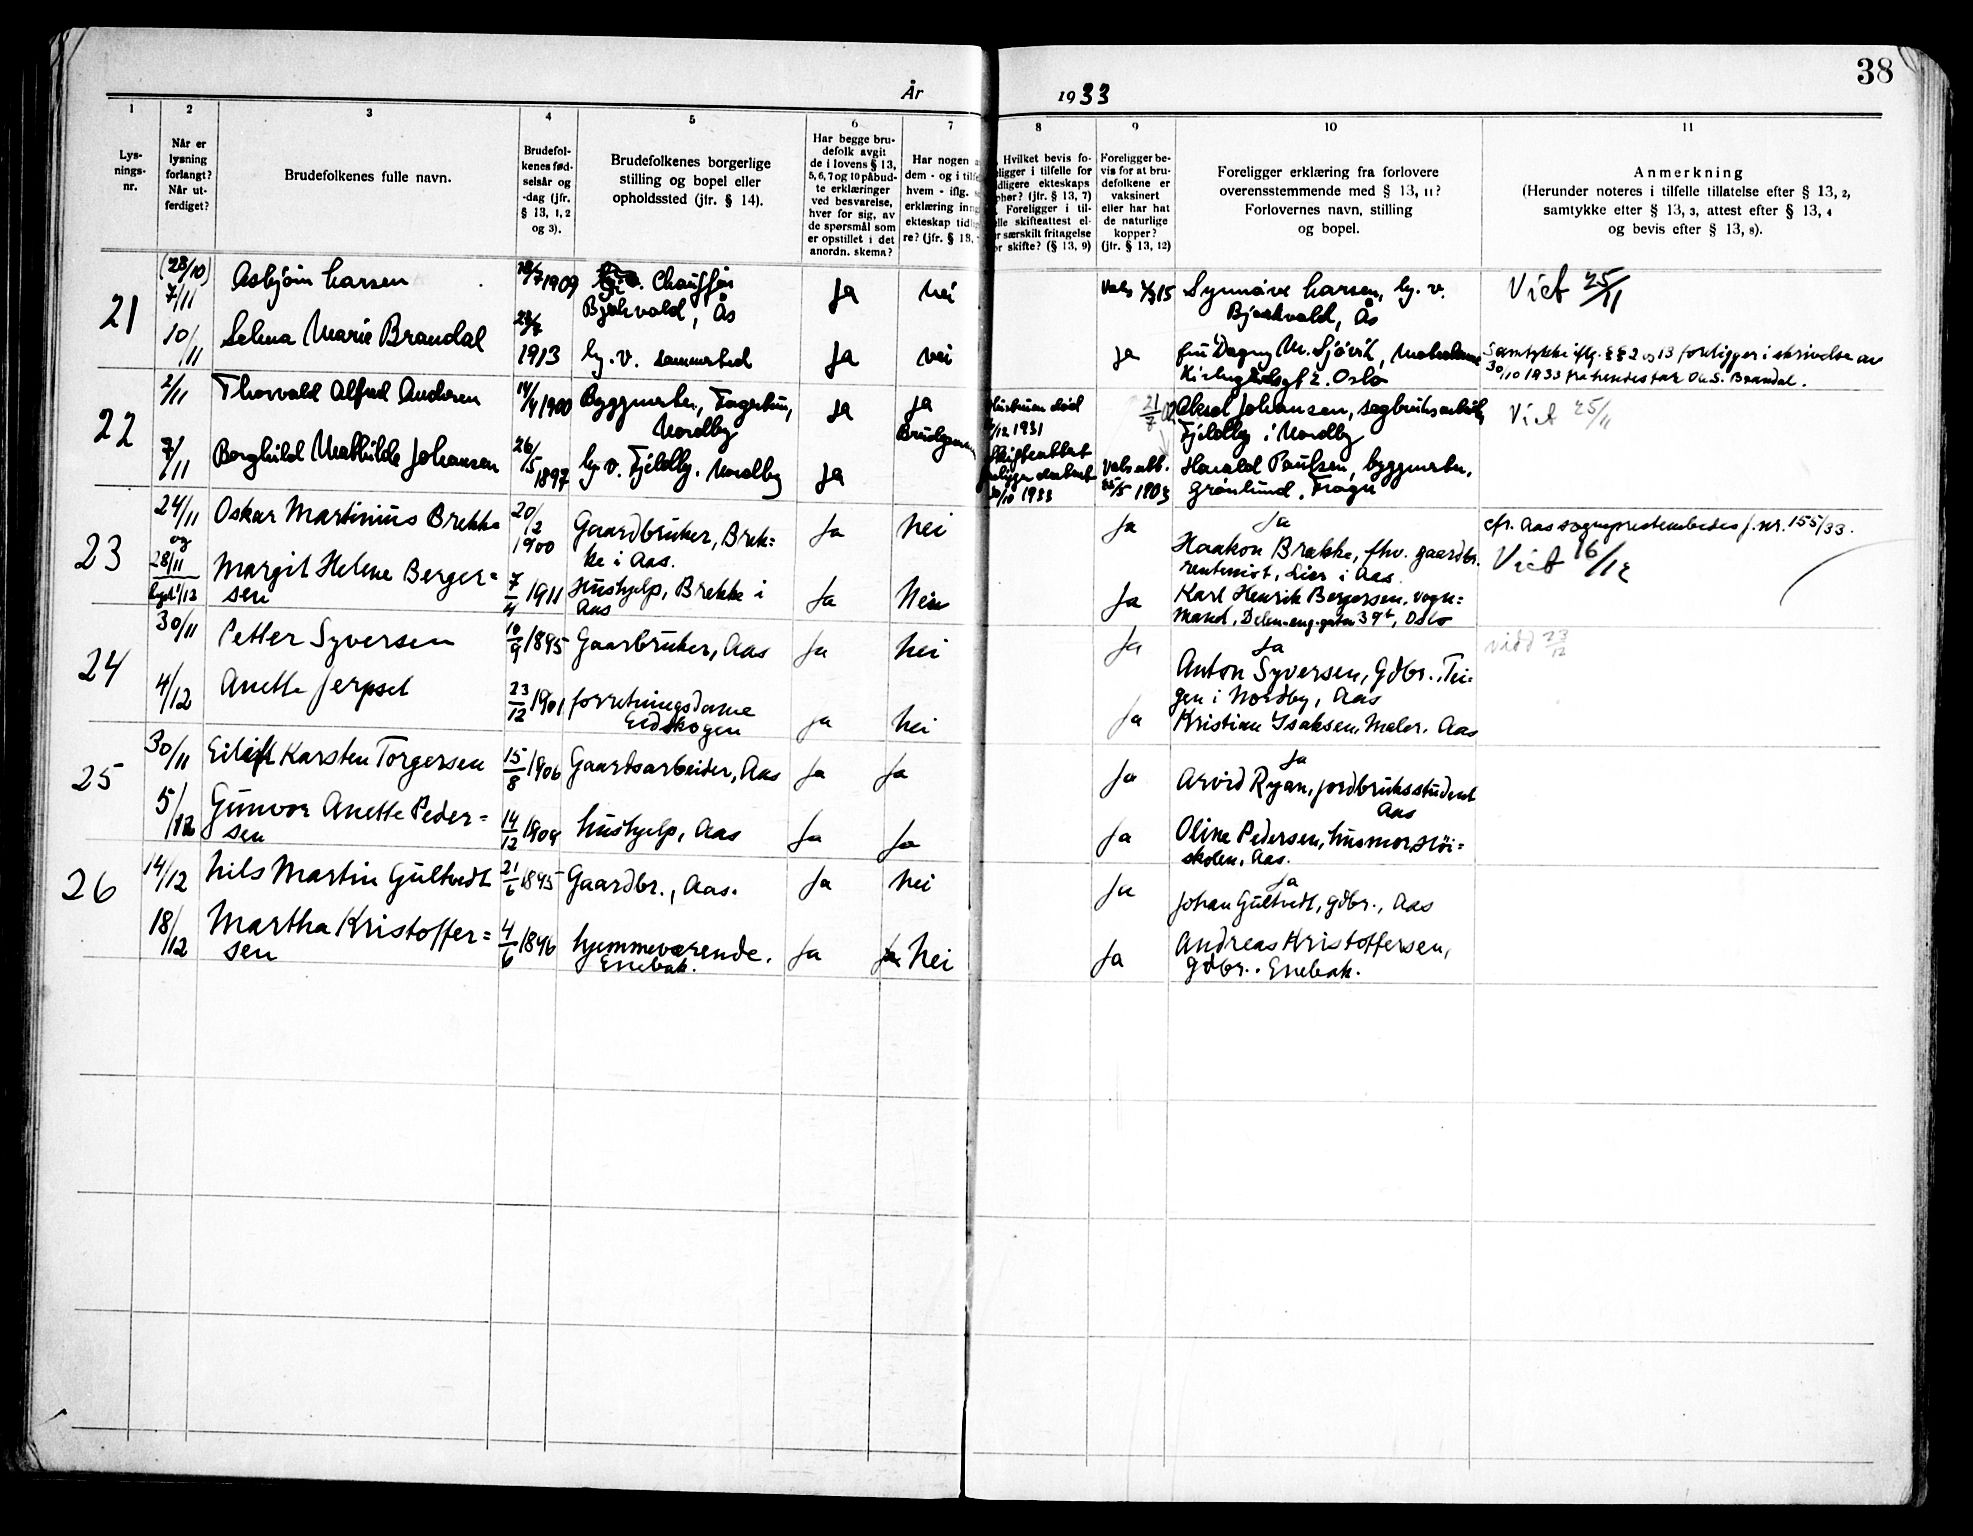 38
År 1933
1 2 3 4 5 6 7 8 9 10 11
Lys-
nings-
nr.
Når er
lysning
forlangt?
Når ut-
ferdiget?
Brudefolkenes fulle navn.
Brudefol-
kenes fød-
selsår og
-dag (jfr.
§ 13, 1, 2
og 3).
Brudefolkenes borgerlige
stilling og bopel eller
opholdssted (jfr. § 14).
Har begge bru-
defolk avgit
de i lovens § 13,
5, 6, 7 og 10 påbud-
te erklæringer
ved besvarelse,
hver for sig, av
de spørsmål som
er opstillet i det
anordn. skema?
Har nogen
dem - og i
hvem - iflg.
erklæring
ekteskap
re? (jfr. § 13,
Hvilket bevis fo-
religger i tilfelle for
tidligere ekteskaps
ophør? (jfr. § 13, 7)
Foreligger i til-
felle skifteattest el-
særskilt fritagelse
skifte? (§ 13, 9)
Foreligger be-
vis for at bru-
defolkene er
vaksinert
eller har hat
de naturlige
kopper?
(jfr. § 13, 12)
Foreligger erklæring fra forlovere
overensstemmende med § 13, 11?
Forlovernes navn, stilling
og bopel.
Anmerkning
(Herunder noteres i tilfelle tillatelse efter § 13, 2,
samtykke efter § 13, 3, attest efter § 13, 4
og bevis efter § 13, 8).
21
(28/10)
7/11
10/11
Asbjörn Larsen
Selma Marie Brandal
1909
1913
Chauffør
Bjerkvald, Ås
hj. v.
Ja
Ja
Nei
Nei
Ja
Synnöve Larsen, hj. v.
Bjerkvald, Ås
Fru Dagny M.
Oslo
Viet 25/11
Samtykke iflg. §§ 2 og 13 foreligger i skrivelse av
30/10 1933 fra hendes far Brandal.
22
2/11
7/11
Thorvald Alfred Andersen
Borghild Mathilde Johansen
1900
26/5 1897
Byggmester,
Nordby
hj. v. Fjeldby. Nordby
Ja
Ja
Ja
Brudgommen
Hustruen död
1931
Skifteattest
30/10 1933
21/7 02
25/5 1903
Aksel Johansen,
Fjeldby i Nordby
Harald Paulsen, byggmester,
Grönlund, Frogn
Viet 25/11
23
24/11
og
28/11
Oskar Martinius Brekke
Margit Helene Berger=
sen
20/2
1900
7/4 1911
Gaardbruker, Brek=
ke i Aas.
Hushjelp, Brekke i
Aas
Ja
Ja
Nei
Nei
Ja
Ja
Ja
Haakon Brekke, fhv. gaardbr.
rentenist, Lier i Aas.
Karl Henrik Bergersen, vogn=
mand, Oslo
cfr. Aas sogneprestembedes j.nr. 155/33.
Viet 16/12
24
30/11
4/12
Petter Syversen
Anette Jerpset
10/9 1895
23/12 1901
Gaarbruker, Aas
forretningsdame
Eidskogen
Ja
Ja
Nei
Nei
Ja
Ja
Ja
Anton Syversen, Gdbr., Tei=
gen i Nordby, Aas
Kristian Isaksen, Maler. Aas
vidd 23/12
25
30/11
5/12
Eilif Karsten Torgersen
Gunvor Anette Peder=
sen
15/8 1906
14/12 1909
Gaardsarbeider, Aas
hushjelp, Aas
Ja
Ja
Ja
Ja
Ja
Ja
Ja
Arvid Ryan, jordbruksstudent
Aas
Oline Pedersen, husmor, Höi=
skolen, Aas.
26
14/12
18/12
Nils Martin Gultvedt
Martha Kristoffer=
sen
21/6 1895
4/6 1896
Gaardbr., Aas.
hjemmeværende.
Enebak.
Ja
Ja
Nei
Nei
Ja
Ja
Ja
Johan Gultvedt, gdbr., Aas
Andreas Kristoffersen,
gdbr.. Enebak.